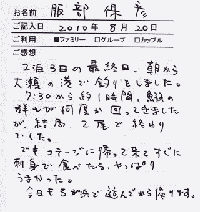 お名前 服部 保彦
ご記入日 2010年 8月 20日
ご利用 ■ファミリー □グループ □カップル
ご感想
2泊3日の最終日、朝から
大瀬の港で釣りをしました。
7:30から約1時間、鰯の
群れが何度か回ってきました
が、結局 2尾で終わり
でした。
でもコテージに帰って来てすぐに
刺身で食べたら、やっぱり
うまかった。
今日も
遊んでから帰ります。